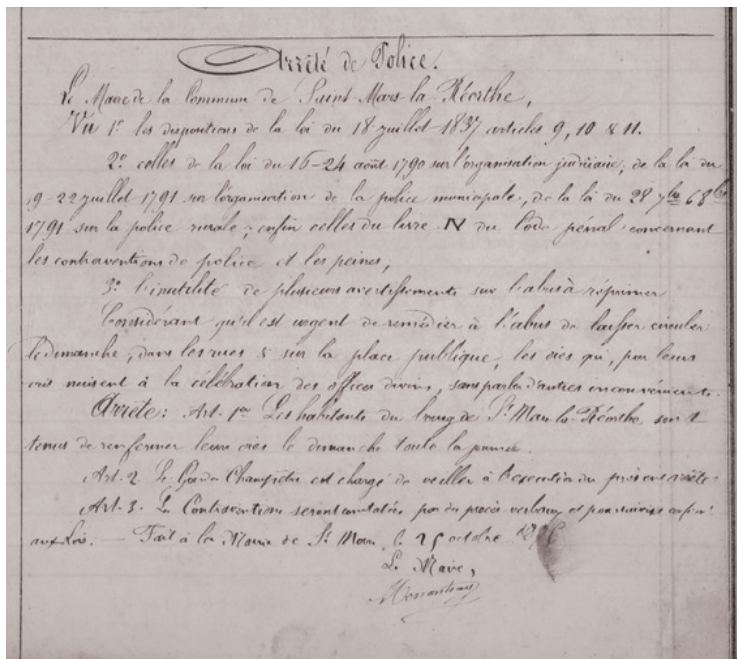 Arrêté de Police.
Le Maire de la Commune de Saint Mars la Réorthe,
Vu 1º les dispositions de la loi du 18 juillet 1837 articles 9, 10 & 11.
2º celles de la loi du 16-24 août 1790 sur l'organisation judiciaire, de la loi du
9-22 juillet 1791 sur l'organisation de la police municipale, de la loi du 28 7bre 6 8bre
1791 sur la police rurale; enfin celles du livre IV du Code pénal concernant
les contraventions de police et les peines,
3º l'inutilité de plusieurs avertissements sur l'abus à réprimer
Considérant qu'il est urgent de remédier à l'abus de laisser circuler
le dimanche, dans les rues & sur la place publique, les oies qui, par leurs
cris nuisent à la célébration des offices divins, sans parler d'autres inconvénients.
Arrête: Art. 1er Les habitants du bourg de St Mars-la-Réorthe sont
tenus de renfermer leurs oies le dimanche toute la journée.
Art. 2. Le Garde Champêtre est chargé de veiller à l'exécution du présent arrêté.
Art. 3. Les Contraventions seront constatées par des procès verbaux et poursuivies conformt
aux Lois. — Fait à la Mairie de St Mars, le 25 octobre
Le Maire,